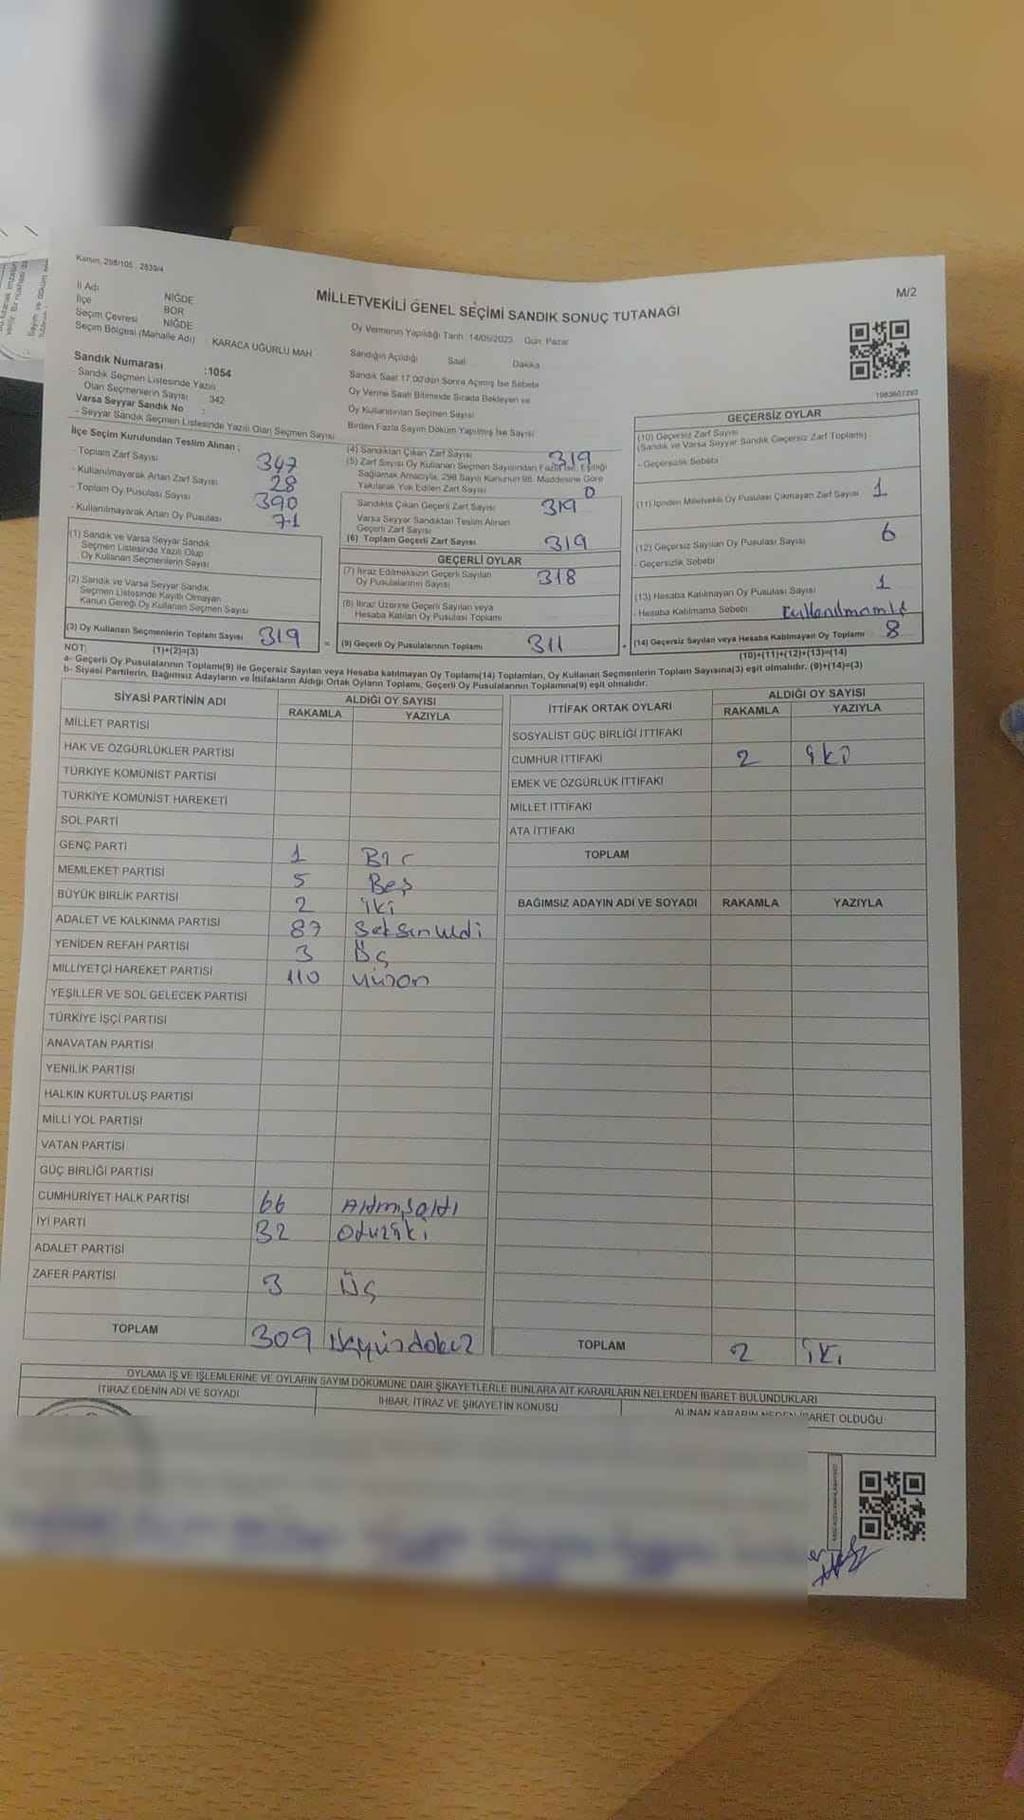 Kanun, 298/105 - 2839/4
MİLLETVEKİLİ GENEL SEÇİMİ SANDIK SONUÇ TUTANAĞI
M/2
İl Adı NİĞDE
İlçe BOR
Seçim Çevresi NİĞDE
Seçim Bölgesi (Mahalle Adı) : KARACA UĞURLU MAH
Sandık Numarası :1054
- Sandık Seçmen Listesinde Yazılı
Olan Seçmenlerin Sayısı 342
Varsa Seyyar Sandık No :
- Seyyar Sandık Seçmen Listesinde Yazılı Olan Seçmen Sayısı
İlçe Seçim Kurulundan Teslim Alınan ;
- Toplam Zarf Sayısı 347
- Kullanılmayarak Artan Zarf Sayısı 28
- Toplam Oy Pusulası Sayısı 390
- Kullanılmayarak Artan Oy Pusulası 71
(1) Sandık ve Varsa Seyyar Sandık
Seçmen Listesinde Yazılı Olup
Oy Kullanan Seçmenlerin Sayısı
(2) Sandık ve Varsa Seyyar Sandık
Seçmen Listesinde Kayıtlı Olmayan
Kanun Gereği Oy Kullanan Seçmen Sayısı
(3) Oy Kullanan Seçmenlerin Toplam Sayısı 319
(1)+(2)=(3)
Oy Vermenin Yapıldığı Tarih :14/05/2023 Gün: Pazar
Sandığın Açıldığı Saat Dakika
Sandık Saat 17.00'dan Sonra Açılmış İse Sebebi
Oy Verme Saati Bitiminde Sırada Bekleyen ve
Oy Kullandırılan Seçmen Sayısı
Birden Fazla Sayım Döküm Yapılmış İse Sayısı
(4) Sandıktan Çıkan Zarf Sayısı 319
(5) Zarf Sayısı Oy Kullanan Seçmen Sayısından Fazla İse, Eşitliği
Sağlamak Amacıyla, 298 Sayılı Kanunun 98. Maddesine Göre
Yakılarak Yok Edilen Zarf Sayısı 0
Sandıkta Çıkan Geçerli Zarf Sayısı 319
Varsa Seyyar Sandıktan Teslim Alınan
Geçerli Zarf Sayısı
(6) Toplam Geçerli Zarf Sayısı 319
GEÇERLİ OYLAR
(7) İtiraz Edilmeksizin Geçerli Sayılan
Oy Pusulalarının Sayısı 318
(8) İtiraz Üzerine Geçerli Sayılan veya
Hesaba Katılan Oy Pusulası Toplamı
= (9) Geçerli Oy Pusulalarının Toplamı 311
1983607293
GEÇERSİZ OYLAR
(10) Geçersiz Zarf Sayısı
(Sandık ve Varsa Seyyar Sandık Geçersiz Zarf Toplamı)
- Geçersizlik Sebebi
(11) İçinden Milletvekili Oy Pusulası Çıkmayan Zarf Sayısı 1
(12) Geçersiz Sayılan Oy Pusulası Sayısı 6
- Geçersizlik Sebebi
(13) Hesaba Katılmayan Oy Pusulası Sayısı 1
- Hesaba Katılmama Sebebi
+ (14) Geçersiz Sayılan veya Hesaba Katılmayan Oy Toplamı 8
(10)+(11)+(12)+(13)=(14)
NOT:
a- Geçerli Oy Pusulalarının Toplamı(9) ile Geçersiz Sayılan veya Hesaba katılmayan Oy Toplamı(14) Toplamları, Oy Kullanan Seçmenlerin Toplam Sayısına(3) eşit olmalıdır. (9)+(14)=(3)
b- Siyasi Partilerin, Bağımsız Adayların ve İttifakların Aldığı Ortak Oyların Toplamı, Geçerli Oy Pusulalarının Toplamına(9) eşit olmalıdır.
SİYASİ PARTİNİN ADI ALDIĞI OY SAYISI
RAKAMLA YAZIYLA
MİLLET PARTİSİ
HAK VE ÖZGÜRLÜKLER PARTİSİ
TÜRKİYE KOMÜNİST PARTİSİ
TÜRKİYE KOMÜNİST HAREKETİ
SOL PARTİ
GENÇ PARTİ 1 Bir
MEMLEKET PARTİSİ 5 Beş
BÜYÜK BİRLİK PARTİSİ 2 iki
ADALET VE KALKINMA PARTİSİ 87
YENİDEN REFAH PARTİSİ 3 Üç
MİLLİYETÇİ HAREKET PARTİSİ 110 yüzon
YEŞİLLER VE SOL GELECEK PARTİSİ
TÜRKİYE İŞÇİ PARTİSİ
ANAVATAN PARTİSİ
YENİLİK PARTİSİ
HALKIN KURTULUŞ PARTİSİ
MİLLİ YOL PARTİSİ
VATAN PARTİSİ
GÜÇ BİRLİĞİ PARTİSİ
CUMHURİYET HALK PARTİSİ 66 Altmışaltı
İYİ PARTİ 32 Otuziki
ADALET PARTİSİ
ZAFER PARTİSİ 3 Üç
TOPLAM 309
İTTİFAK ORTAK OYLARI ALDIĞI OY SAYISI
RAKAMLA YAZIYLA
SOSYALİST GÜÇ BİRLİĞİ İTTİFAKI
CUMHUR İTTİFAKI 2 iki
EMEK VE ÖZGÜRLÜK İTTİFAKI
MİLLET İTTİFAKI
ATA İTTİFAKI
TOPLAM
BAĞIMSIZ ADAYIN ADI VE SOYADI RAKAMLA YAZIYLA
TOPLAM 2 iki
OYLAMA İŞ VE İŞLEMLERİNE VE OYLARIN SAYIM DÖKÜMÜNE DAİR ŞİKAYETLERLE BUNLARA AİT KARARLARIN NELERDEN İBARET BULUNDUKLARI
İTİRAZ EDENİN ADI VE SOYADI İHBAR, İTİRAZ VE ŞİKAYETİN KONUSU ALINAN KARARIN NEDEN İBARET OLDUĞU